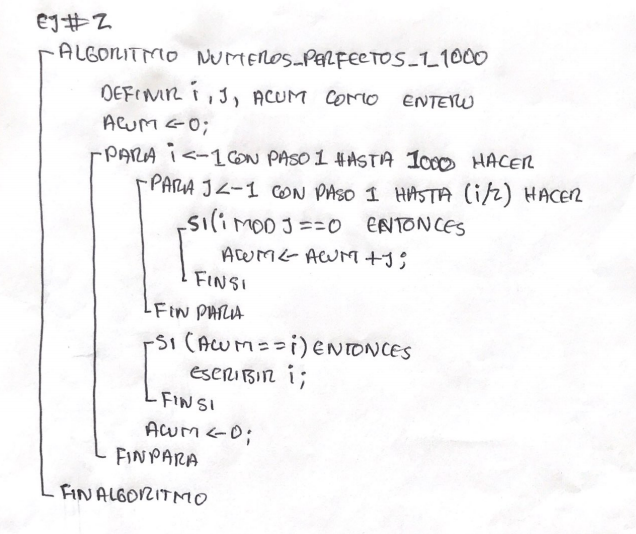 EJ#2
ALGORITMO NUMEROS_PERFECTOS_1_1000
DEFINIR i, J, ACUM COMO ENTERO
ACUM <-0;
PARA i<-1 CON PASO 1 HASTA 1000 HACER
PARA J<-1 CON PASO 1 HASTA (i/2) HACER
SI(i MOD J==0 ENTONCES
ACUM<- ACUM+J;
FINSI
FIN PARA
SI (ACUM==i) ENTONCES
ESCRIBIR i;
FINSI
ACUM<-0;
FINPARA
FINALGORITMO